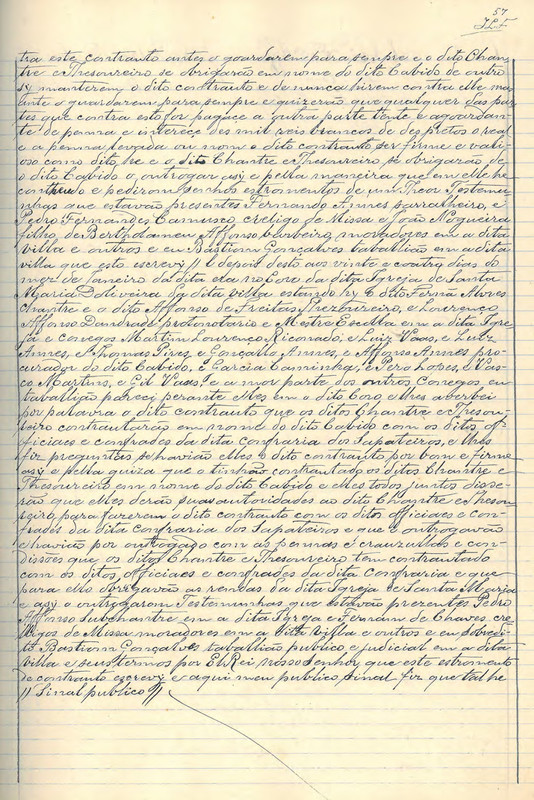 57
tra este contrauto antes o goardarem para sempre e o dito Chan-
tre e Thesoureiro se obrigarão em nome do dito Cabido de outro
sy manterem o dito contrauto e de nunca hirem contra elle mas
ante o guardarem para sempre e quizerão que qualquer das par-
tes que contra esto for pague a outra parte tente e agoardan-
te de penna e interece des mil reis brancos de des pretos o real
e a penna levada ou nom o dito contrauto ser firme e vali-
oso como dito he e o dito Chantre e Thesoureiro se obrigarão, de
o dito Cabido o outrogar asy e pella maneira que em elle he
contheudo e pedirom senhos estromentos de um Teor Testemu-
nhas que estavão presentes Fernando Annes sarralheiro, e
Pedro Fernandes Camusco, creligo de Missa e João Nogueira
filho de Bertholameu Affonso, barbeiro, moradores em a dita
villa e outros e eu Bastiom Gonçalves taballião em a dita
villa que esto escrevy // E depois desto aos vinte e coatro dias do
mez de Janeiro da dita era no Coro da dita Igreja de Santa
Maria Doliveira da dita villa estando hy o dito Fernã Alvres
Chantre e o dito Affonso de Freitas Thezoureiro, e Lourenço
Affonso Dandrade protonotario e Mestre Escolla em a dita Igre-
ja e conegos Martim Lourenço, Riconado, e Luiz Vaas, e Luiz
Annes, e Thomas Pires, e Gonçallo Annes, e Affonso Annes pro-
curador do dito Cabido, e Garcia Caminha, e Pero Lopes, e Vas-
co Martins, e Gil Vases e a mor parte dos outros Conegos eu
taballião pareci perante elles em o dito Coro, e lhes aberbei
por palavra o dito contrauto que os ditos Chantre e Thesou-
reiro contrautarão em nome do dito Cabido com os ditos of-
ficiaes e confrades da dita confraria dos Sapateiros, e lhes
fiz pregunta se havião elles o dito contrauto por bom e firme
asy e pella guiza que o tinhão contrautado os ditos Chantre e
Thesoureiro em nome do dito Cabido e elles todos juntos disse-
rão que elles derão suas autoridades ao dito Chantre e Thesou-
reiro, para fazerem o dito contrauto com os ditos officiaes e con-
frades da dita confraria dos Sapateiros e que o outrogavão
e havião por outrogado com as pennas e crauzullas e con-
dissões que os ditos Chantre e Thesoureiro tem contrautado
com os ditos, officiaes e confrades da dita Confraria e que
para ello obrigavão as rendas da dita Igreja de Santa Maria
e asy o outrogarom Testemunhas que estavão prezentes Pedro
Affonso Subchantre em a dita Igreja e Fernam de Chaves cre-
ligos de Missa moradores em a dita Villa e outros e eu sobredi-
to Bastiom Gonçalves taballião publico e judicial em a dita
villa e seus termos por El Rei nosso Senhor, que este estromento
de contrauto escrevy e aqui meu publico sinal fiz que tal he
// Sinal publico //